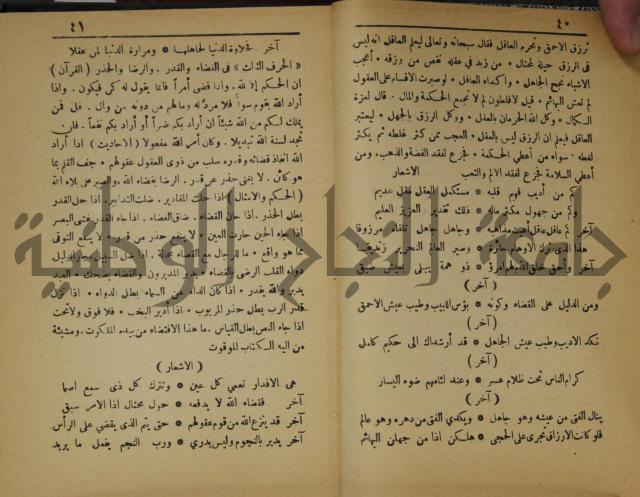 ٤٠
ترزق الاحمق وتحرم العاقل فقال سبحانه وتعالى ليعلم العاقل انه ليس
فى الرزق حيلة لمحتال • من زيد فى عقله نقص من رزقه • أعجب
الاشياء نجح الجاهل • واكداء العاقل • لو صبرت الاقسام على العقول
لم تعش البهائم • قيل لافلاطون لم لا تجتمع الحكمة والمال • قال لعزة
الكمال • وكل الله الحرمان بالعقل • ووكل الرزق بالجهل • ليعتبر
العاقل فيعلم ان الرزق ليس بالعقل • العجب ممن كثر غلطه ثم يكثر
لفظه • سواء من أعطي الحكمة • فجزع لفقد الفضة والذهب • ومن
أعطي السلامة فجزع لفقد الالم والتعب الاشعار
كم من أديب فهم قلبه • مستكمل العقل مقل عديم
وكم من جهول مكثر ماله • ذلك تقدير العزيز العليم
آخر كم عاقل عاقل أعيت مذاهبه • وجاهل جاهل تلقاه مرزوقا
هذا الذى ترك الاوهام حائرة • وصير العالم النحرير زنديقا
آخر وأحق خلق الله بالهم امرؤ • ذو همة يبلى بعيش ضيق
( آخر )
ومن الدليل على القضاء وكونه • بؤس اللبيب وطيب عيش الاحمق
( آخر )
نكد الاديب وطيب عيش الجاهل • قد أرشداك الى حكيم كامل
( آخر )
كرام الناس تحت ظلام عسر • وعند لئامهم ضوء اليسار
( آخر )
ينال الفتى من عيشه وهو جاهل • ويكدي الفتى من دهره وهو عالم
فلو كانت الارزاق تجرى على الحجى • هلكن اذا من جهلهن البهائم
٤١
آخر فحلاوة الدنيا لجاهلها • ومرارة الدنيا لمن عقلا
« الحرف الثالث » فى القضاء والقدر . والرضا والحذر ( القرآن )
ان الحكم إلا لله . واذا قضى أمراً فانما يقول له كن فيكون . واذا
أراد الله بقوم سوأ فلا مرد له ومالهم من دونه من وال . قل فمن
يملك لكم من الله شيئاً ان أراد بكم ضراً أو أراد بكم نفعاً . فلن
تجد لسنة الله تبديلا . وكان أمر الله مفعولا ( الاحاديث ) اذا أراد
الله انفاذ قضائه وقدره سلب من ذوى العقول عقولهم • جف القلم بما
هو كائن . لا يغنى حذر عن قدر . الرضا بقضاء الله . والصبر على بلاء الله
( الحكم والامثال ) اذا حلت المقادير . ضلت التدابير . اذا حل القدر
بطل الحذر . اذا حان القضاء . ضاق الفضاء . اذا جاء القدر . غشى البصر
اذا جاء الحين حارت العين • لا ينفع حذر من قدر • لا ينفع التوقى
مما هو واقع • ما للرجال مع القضاء محالة •
دواء القلب الرضى بالقضاء • يدبر المدبرون والقضاء يضحك • العبد
يدبر والله يقدر • اذا كان الداء من السماء بطل الدواء • اذا نزل
قدر الرب بطل حذر المربوب • اذا أدبر البخت • فلا فوق ولا تحت
اذا جاء النص بطل القياس . ما هذا الاقتضاء من بيده الملكوت . ومشيئة
من اليه الكتاب الموقوت
( الاشعار )
هى الاقدار تعمي كل عين • وتترك كل ذى سمع اصما
آخر فقضاء الله لا يدفعه • حول محتال اذا الامر سبق
آخر قد ينزع الله من قوم عقولهم • حتى يتم الذى يقضى على الرأس
آخر يدبر بالنجوم وليس يدري • ورب النجم يفعل ما يريد
جامعة النجاح الوطنية